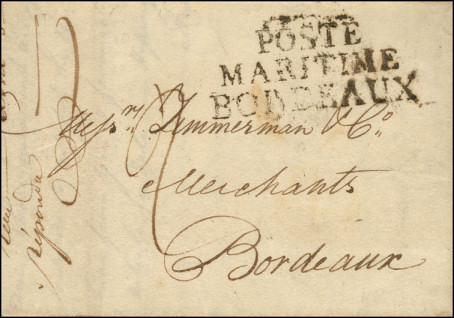 POSTE
MARITIME
BODDEAUX
Messrs. Zimmerman & Co.
Merchants
Bordeaux
répondu